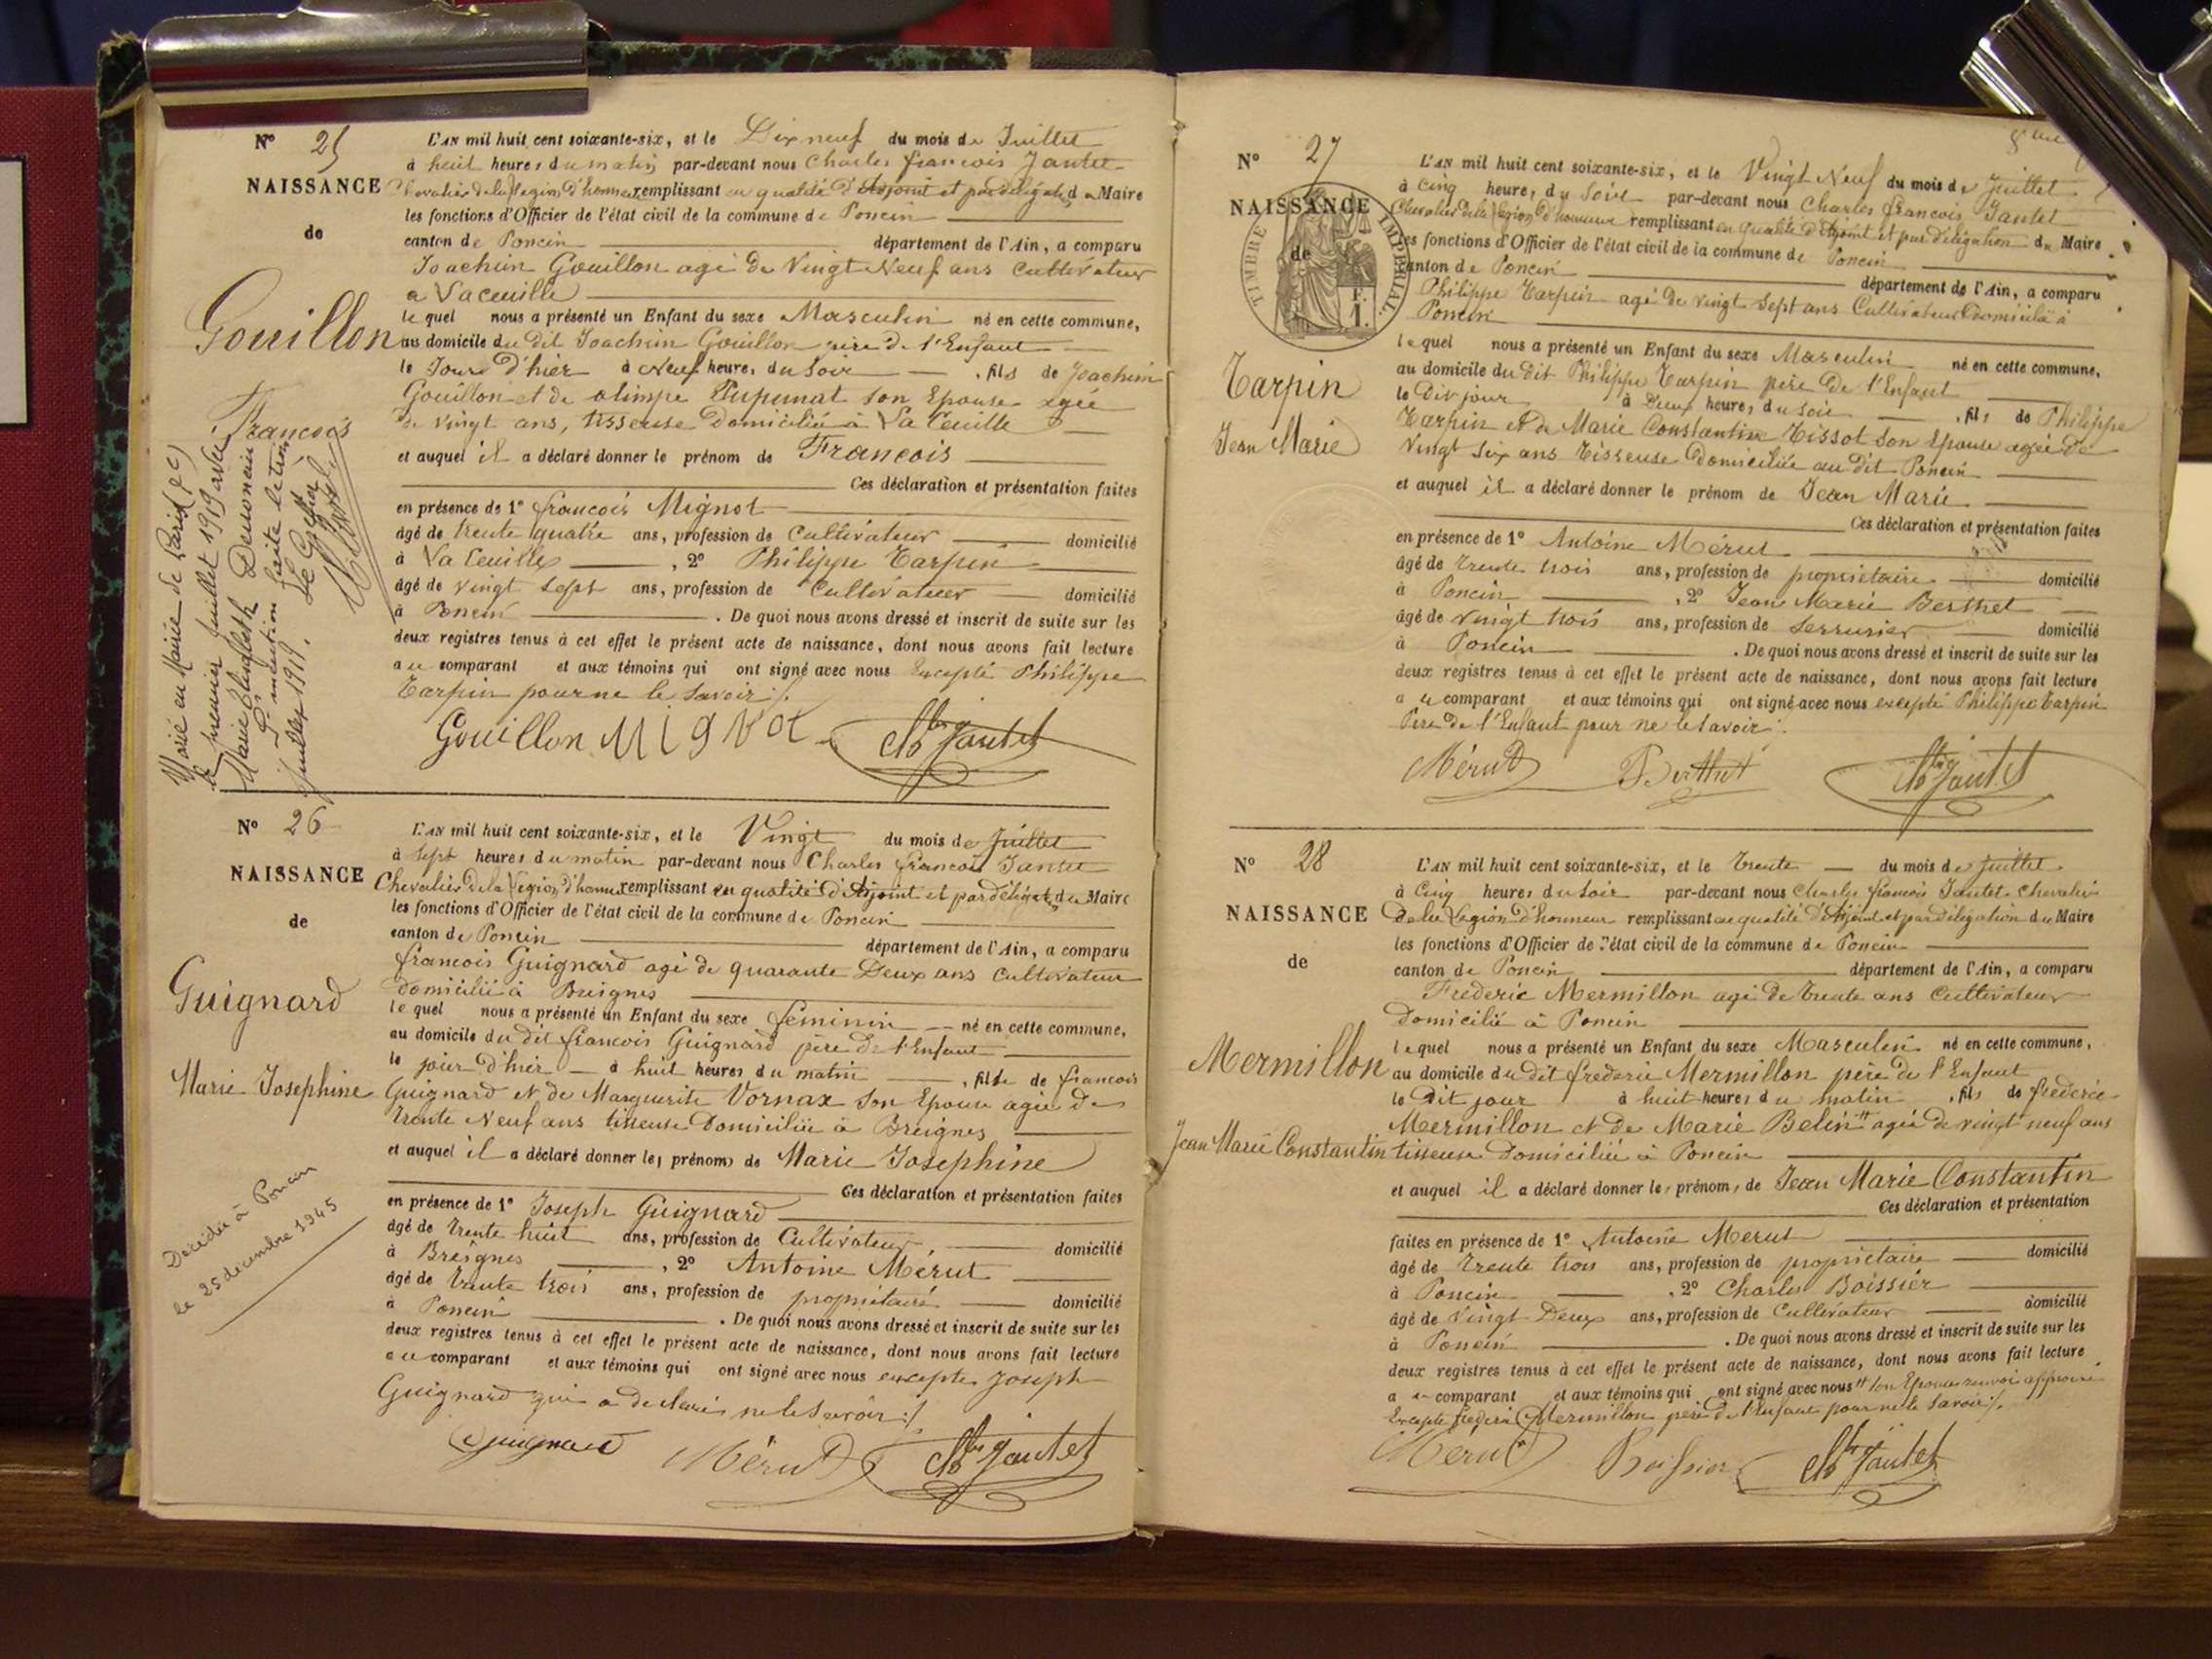 N° 25
NAISSANCE
de
Gouillon
François
Marié en Mairie de Paris
le premier Juillet 1919 avec
Marie Elisabeth
mention faite le trois
Juillet 1919.
L'AN mil huit cent soixante-six, et le Dix neuf du mois de Juillet
à huit heures du matin par-devant nous Charles François Jantet
Chevalier de la Légion d'honneur remplissant en qualité d'Adjoint et par délégation du Maire
les fonctions d'Officier de l'état civil de la commune de Poncin
canton de Poncin département de l'Ain, a comparu
Joachim Gouillon agé de Vingt Neuf ans Cultivateur
a La Ceuille
lequel nous a présenté un Enfant du sexe Masculin né en cette commune,
au domicile du dit Joachim Gouillon père de l'Enfant
le Jour d'hier à Neuf heures du Soir , fils de Joachim
Gouillon et de olimpe son Epouse agée
de vingt ans, tisseuse Domiciliée à La Ceuille
et auquel il a déclaré donner le prénom de François
Ces déclaration et présentation faites
en présence de 1° François Mignot
âgé de trente quatre ans, profession de Cultivateur domicilié
à La Ceuille , 2° Philippe Tarpin
âgé de vingt sept ans, profession de Cultivateur domicilié
à Poncin . De quoi nous avons dressé et inscrit de suite sur les
deux registres tenus à cet effet le présent acte de naissance, dont nous avons fait lecture
au comparant et aux témoins qui ont signé avec nous Excepté Philippe
Tarpin pour ne le savoir ./.
Gouillon Mignot Ch Jantet
N° 26
NAISSANCE
de
Guignard
Marie Josephine
Décédée à Poncin
le 25 décembre 1945
L'AN mil huit cent soixante-six, et le Vingt du mois de Juillet
à sept heures du matin par-devant nous Charles François Jantet
Chevalier de la Légion d'honneur remplissant en qualité d'Adjoint et par délégation du Maire
les fonctions d'Officier de l'état civil de la commune de Poncin
canton de Poncin département de l'Ain, a comparu
François Guignard agé de quarante Deux ans cultivateur
domicilié à Breignes
lequel nous a présenté un Enfant du sexe féminin né en cette commune,
au domicile du dit François Guignard père de l'Enfant
le jour d'hier à huit heures du matin , fille de François
Guignard et de Marguerite Vornax Son Epouse agée de
trente Neuf ans tisseuse Domiciliée à Breignes
et auquel il a déclaré donner les prénoms de Marie Josephine
Ces déclaration et présentation faites
en présence de 1° Joseph Guignard
âgé de trente huit ans, profession de Cultivateur domicilié
à Breignes , 2° Antoine Mérut
âgé de trente trois ans, profession de propriétaire domicilié
à Poncin . De quoi nous avons dressé et inscrit de suite sur les
deux registres tenus à cet effet le présent acte de naissance, dont nous avons fait lecture
au comparant et aux témoins qui ont signé avec nous excepté Joseph
Guignard qui a declaré ne le savoir ./.
Guignard Mérut Ch Jantet
N° 27
NAISSANCE
de
TIMBRE IMPERIAL
F.
1.
Tarpin
Jean Marie
L'AN mil huit cent soixante-six, et le Vingt Neuf du mois de Juillet
à Cinq heures du Soir par-devant nous Charles François Jantet
Chevalier de la Légion d'honneur remplissant en qualité d'Adjoint et par délégation du Maire
les fonctions d'Officier de l'état civil de la commune de Poncin
canton de Poncin département de l'Ain, a comparu
Philippe Tarpin agé de vingt Sept ans Cultivateur Domicilié à
Poncin
lequel nous a présenté un Enfant du sexe Masculin né en cette commune,
au domicile du dit Philippe Tarpin père de l'Enfant
le Dit jour à Deux heures du Soir , fils de Philippe
Tarpin et de Marie Constantine Tissot Son Epouse agée de
Vingt Six ans Tisseuse Domiciliée au dit Poncin
et auquel il a déclaré donner le prénom de Jean Marie
Ces déclaration et présentation faites
en présence de 1° Antoine Mérut
âgé de trente trois ans, profession de propriétaire domicilié
à Poncin , 2° Jean Marie Berthet
âgé de vingt trois ans, profession de Serrurier domicilié
à Poncin . De quoi nous avons dressé et inscrit de suite sur les
deux registres tenus à cet effet le présent acte de naissance, dont nous avons fait lecture
au comparant et aux témoins qui ont signé avec nous excepté Philippe Tarpin
Père de l'Enfant pour ne le savoir .
Mérut Berthet Ch Jantet
N° 28
NAISSANCE
de
Mermillon
Jean Marie Constantin
L'AN mil huit cent soixante-six, et le trente du mois de Juillet
à Cinq heures du Soir par-devant nous Charles François Jantet Chevalier
de la Légion d'honneur remplissant en qualité d'Adjoint et par délégation du Maire
les fonctions d'Officier de l'état civil de la commune de Poncin
canton de Poncin département de l'Ain, a comparu
Frederic Mermillon agé de trente ans Cultivateur
Domicilié à Poncin
lequel nous a présenté un Enfant du sexe Masculin né en cette commune,
au domicile du dit frederic Mermillon père de l'Enfant
le Dit jour à huit heures du matin , fils de frederic
Mermillon et de Marie Belin # agée de vingt neuf ans
tisseuse Domiciliée à Poncin
et auquel il a déclaré donner les prénoms de Jean Marie Constantin
Ces déclaration et présentation
faites en présence de 1° Antoine Merut
âgé de trente trois ans, profession de propriétaire domicilié
à Poncin , 2° Charles Boissier
âgé de vingt Deux ans, profession de Cultivateur domicilié
à Poncin . De quoi nous avons dressé et inscrit de suite sur les
deux registres tenus à cet effet le présent acte de naissance, dont nous avons fait lecture
au comparant et aux témoins qui ont signé avec nous # Son Epouse renvoi approuvé
Excepté frederic Mermillon père de l'Enfant pour ne le savoir ./.
Mérut Boissier Ch Jantet